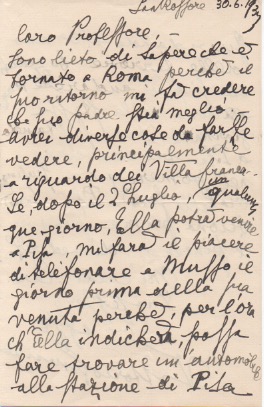 San Rossore 30.6.
Caro Professore,
Sono lieto di sapere che è
tornato a Roma perché il
suo ritorno mi fa credere
che suo padre stia meglio.
avrei diverse cose da farle
vedere, principalmente
a riguardo dei Villafranca.
Se, dopo il 2 Luglio, in qualun
que giorno, Ella potrà venire
a Pisa, mi farà il piacere
di telefonare a Muffo, il
giorno prima della sua
venuta perché, per l'ora
ch'Ella indicherà, possa
fare trovare un'automobile
alla stazione di Pisa